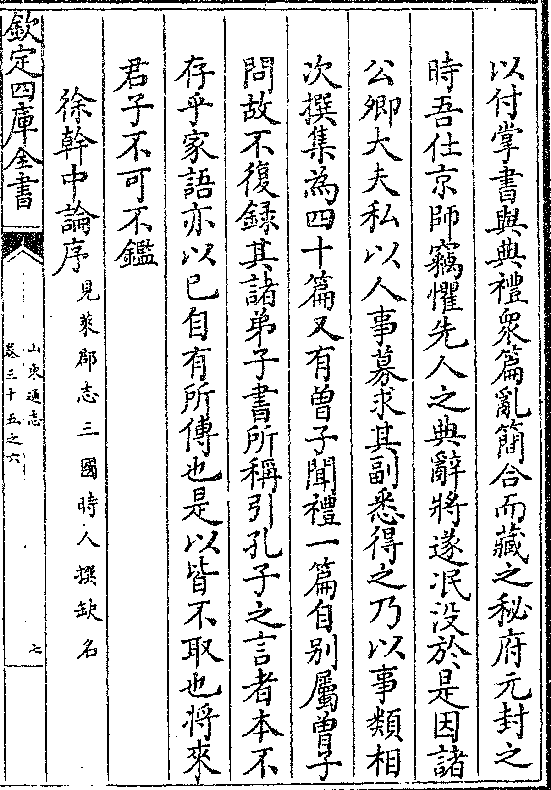 以付掌書與典禮眾篇亂簡合而藏之秘府元封之
時吾仕京師竊懼先人之典辭將遂泯没於是因諸
公卿大夫私以人事募求其副悉得之乃以事類相
次撰集為四十篇又有曾子問禮一篇自别屬曾子
問故不復録其諸弟子書所稱引孔子之言者本不
存乎家語亦以已自有所傳也是以皆不取也將來
君子不可不鑑
徐幹中論序見萊郡志三國時人撰缺名
欽定四庫全書
山東通志
卷三十五之六
七